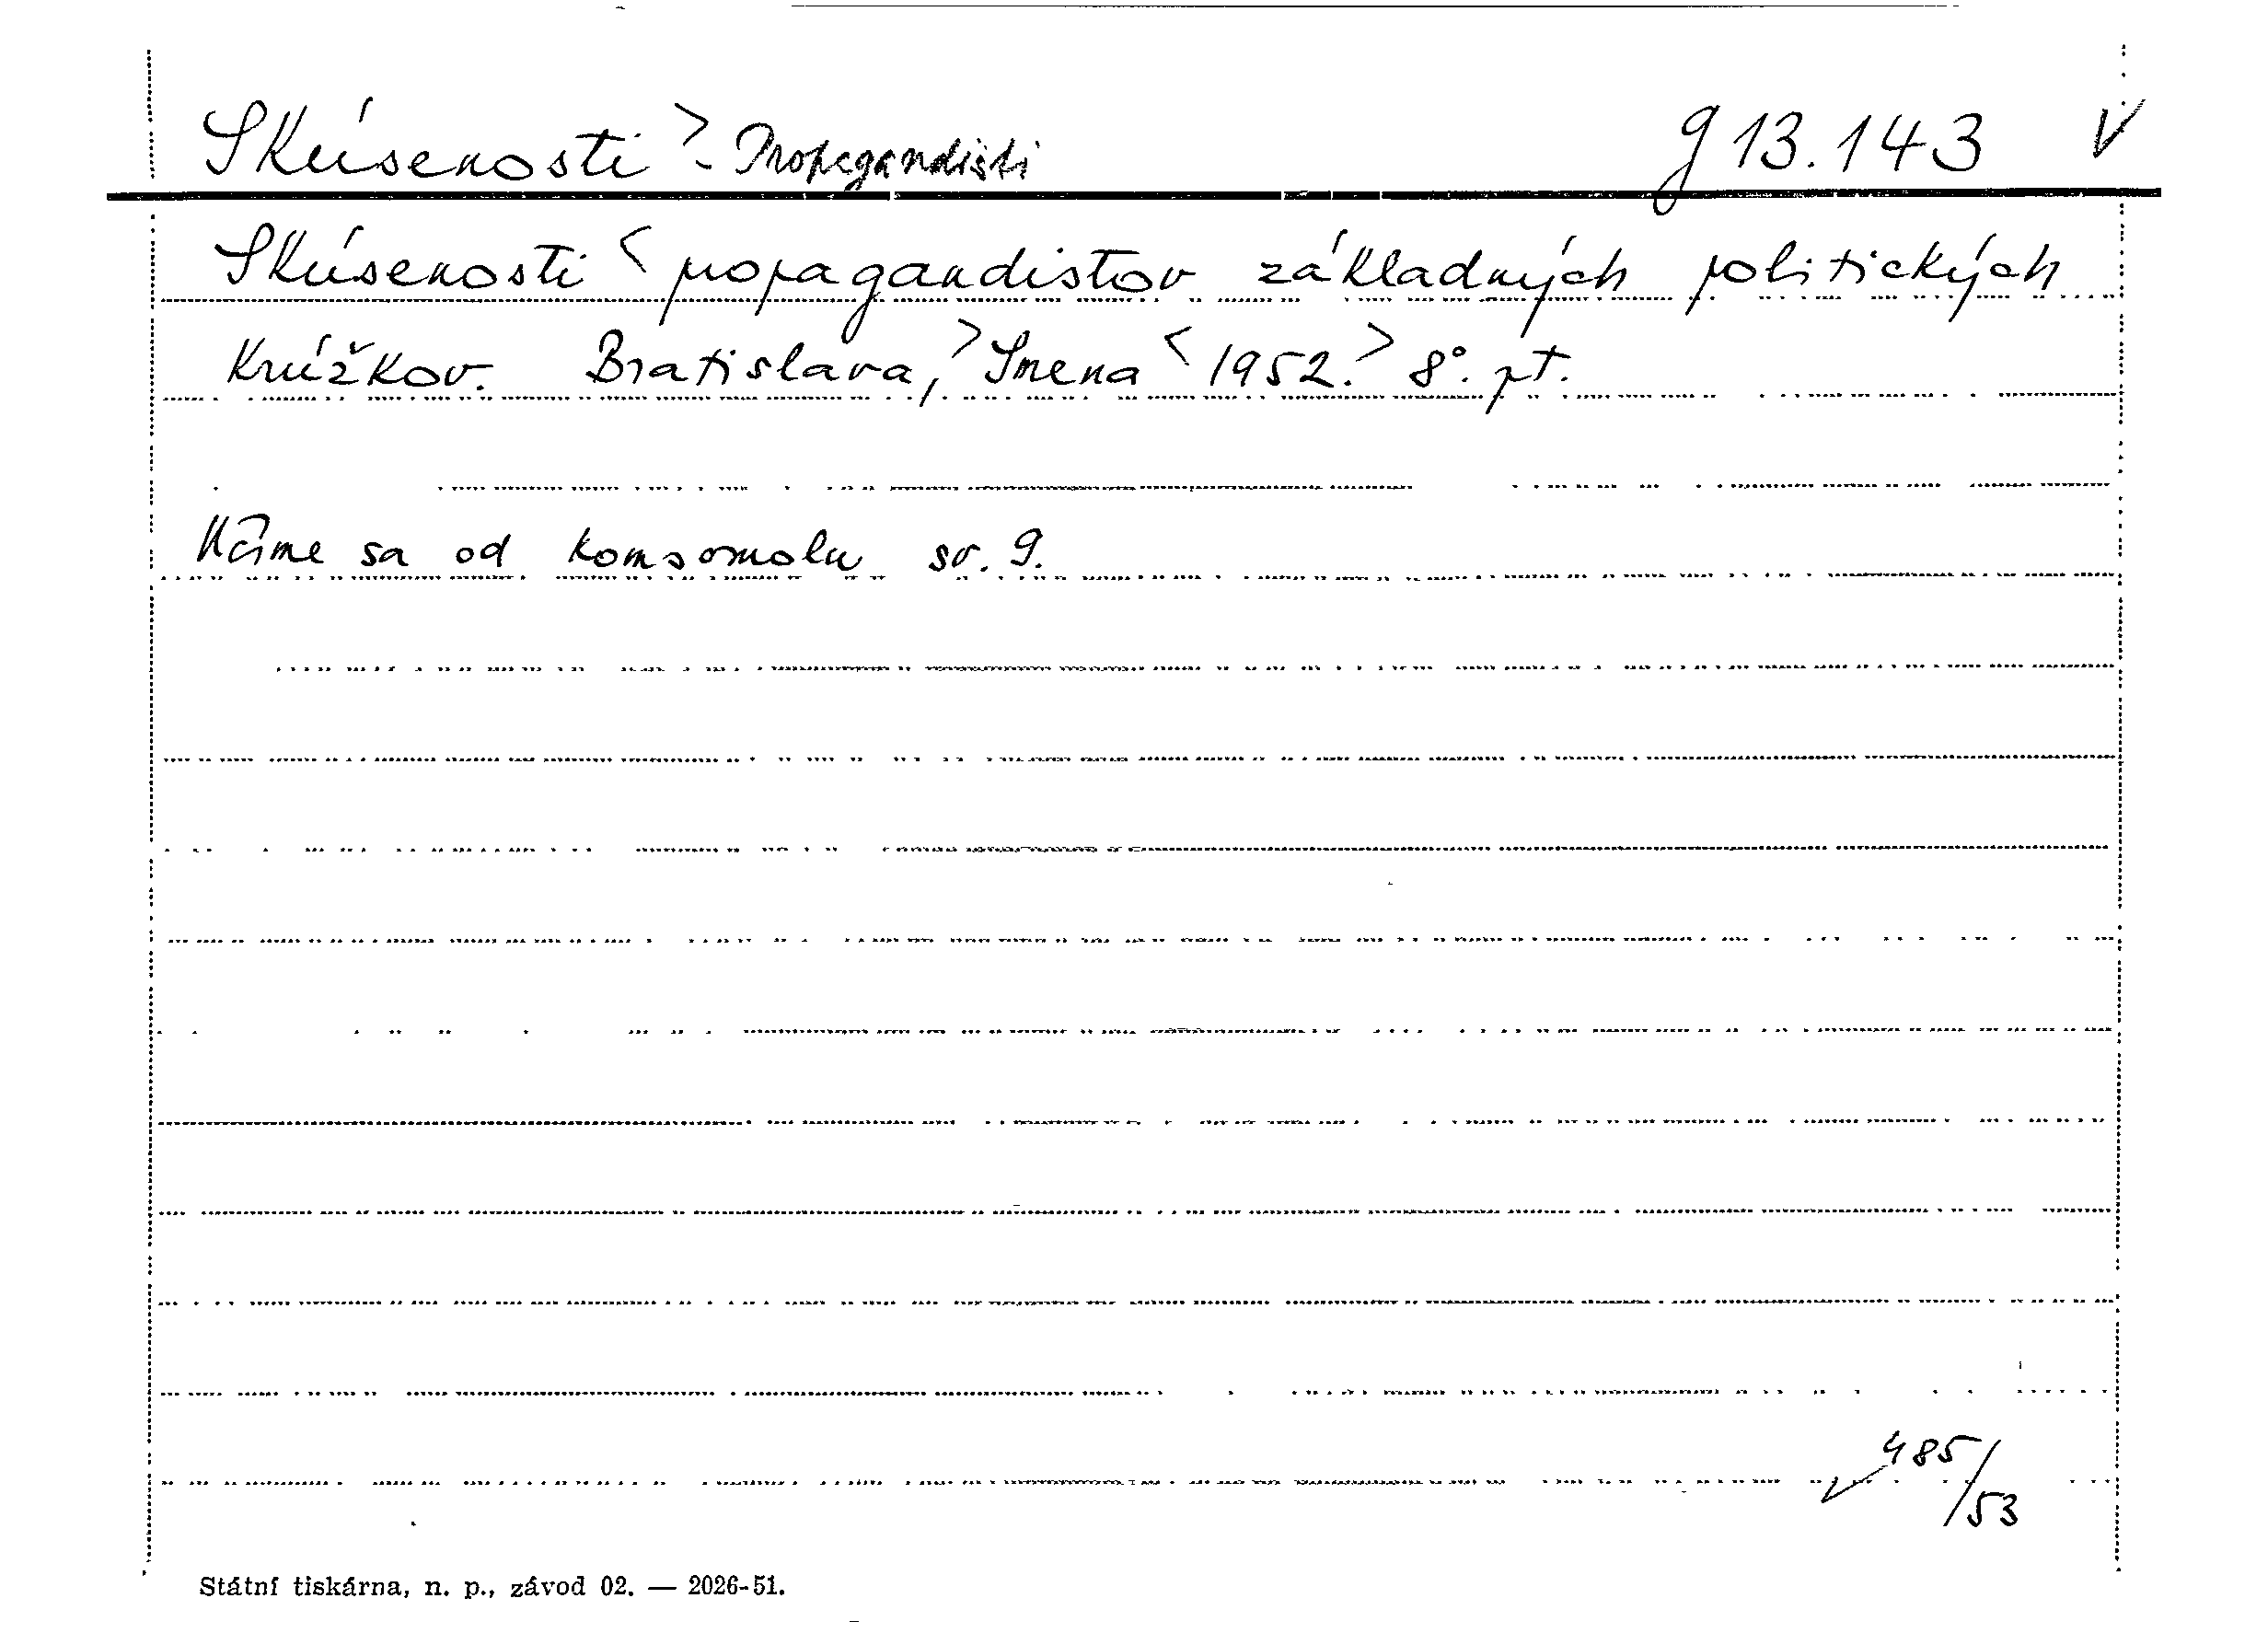 Skúsenosti > - Propagandisti g 13.143 V
Skúsenosti < propagandistov základných politických
krúžkov. Bratislava, > Smena < 1952. > 8°. pt.
Učíme sa od komsomolu sv. 9.
485/53
Státní tiskárna, n. p., závod 02. — 2026-51.